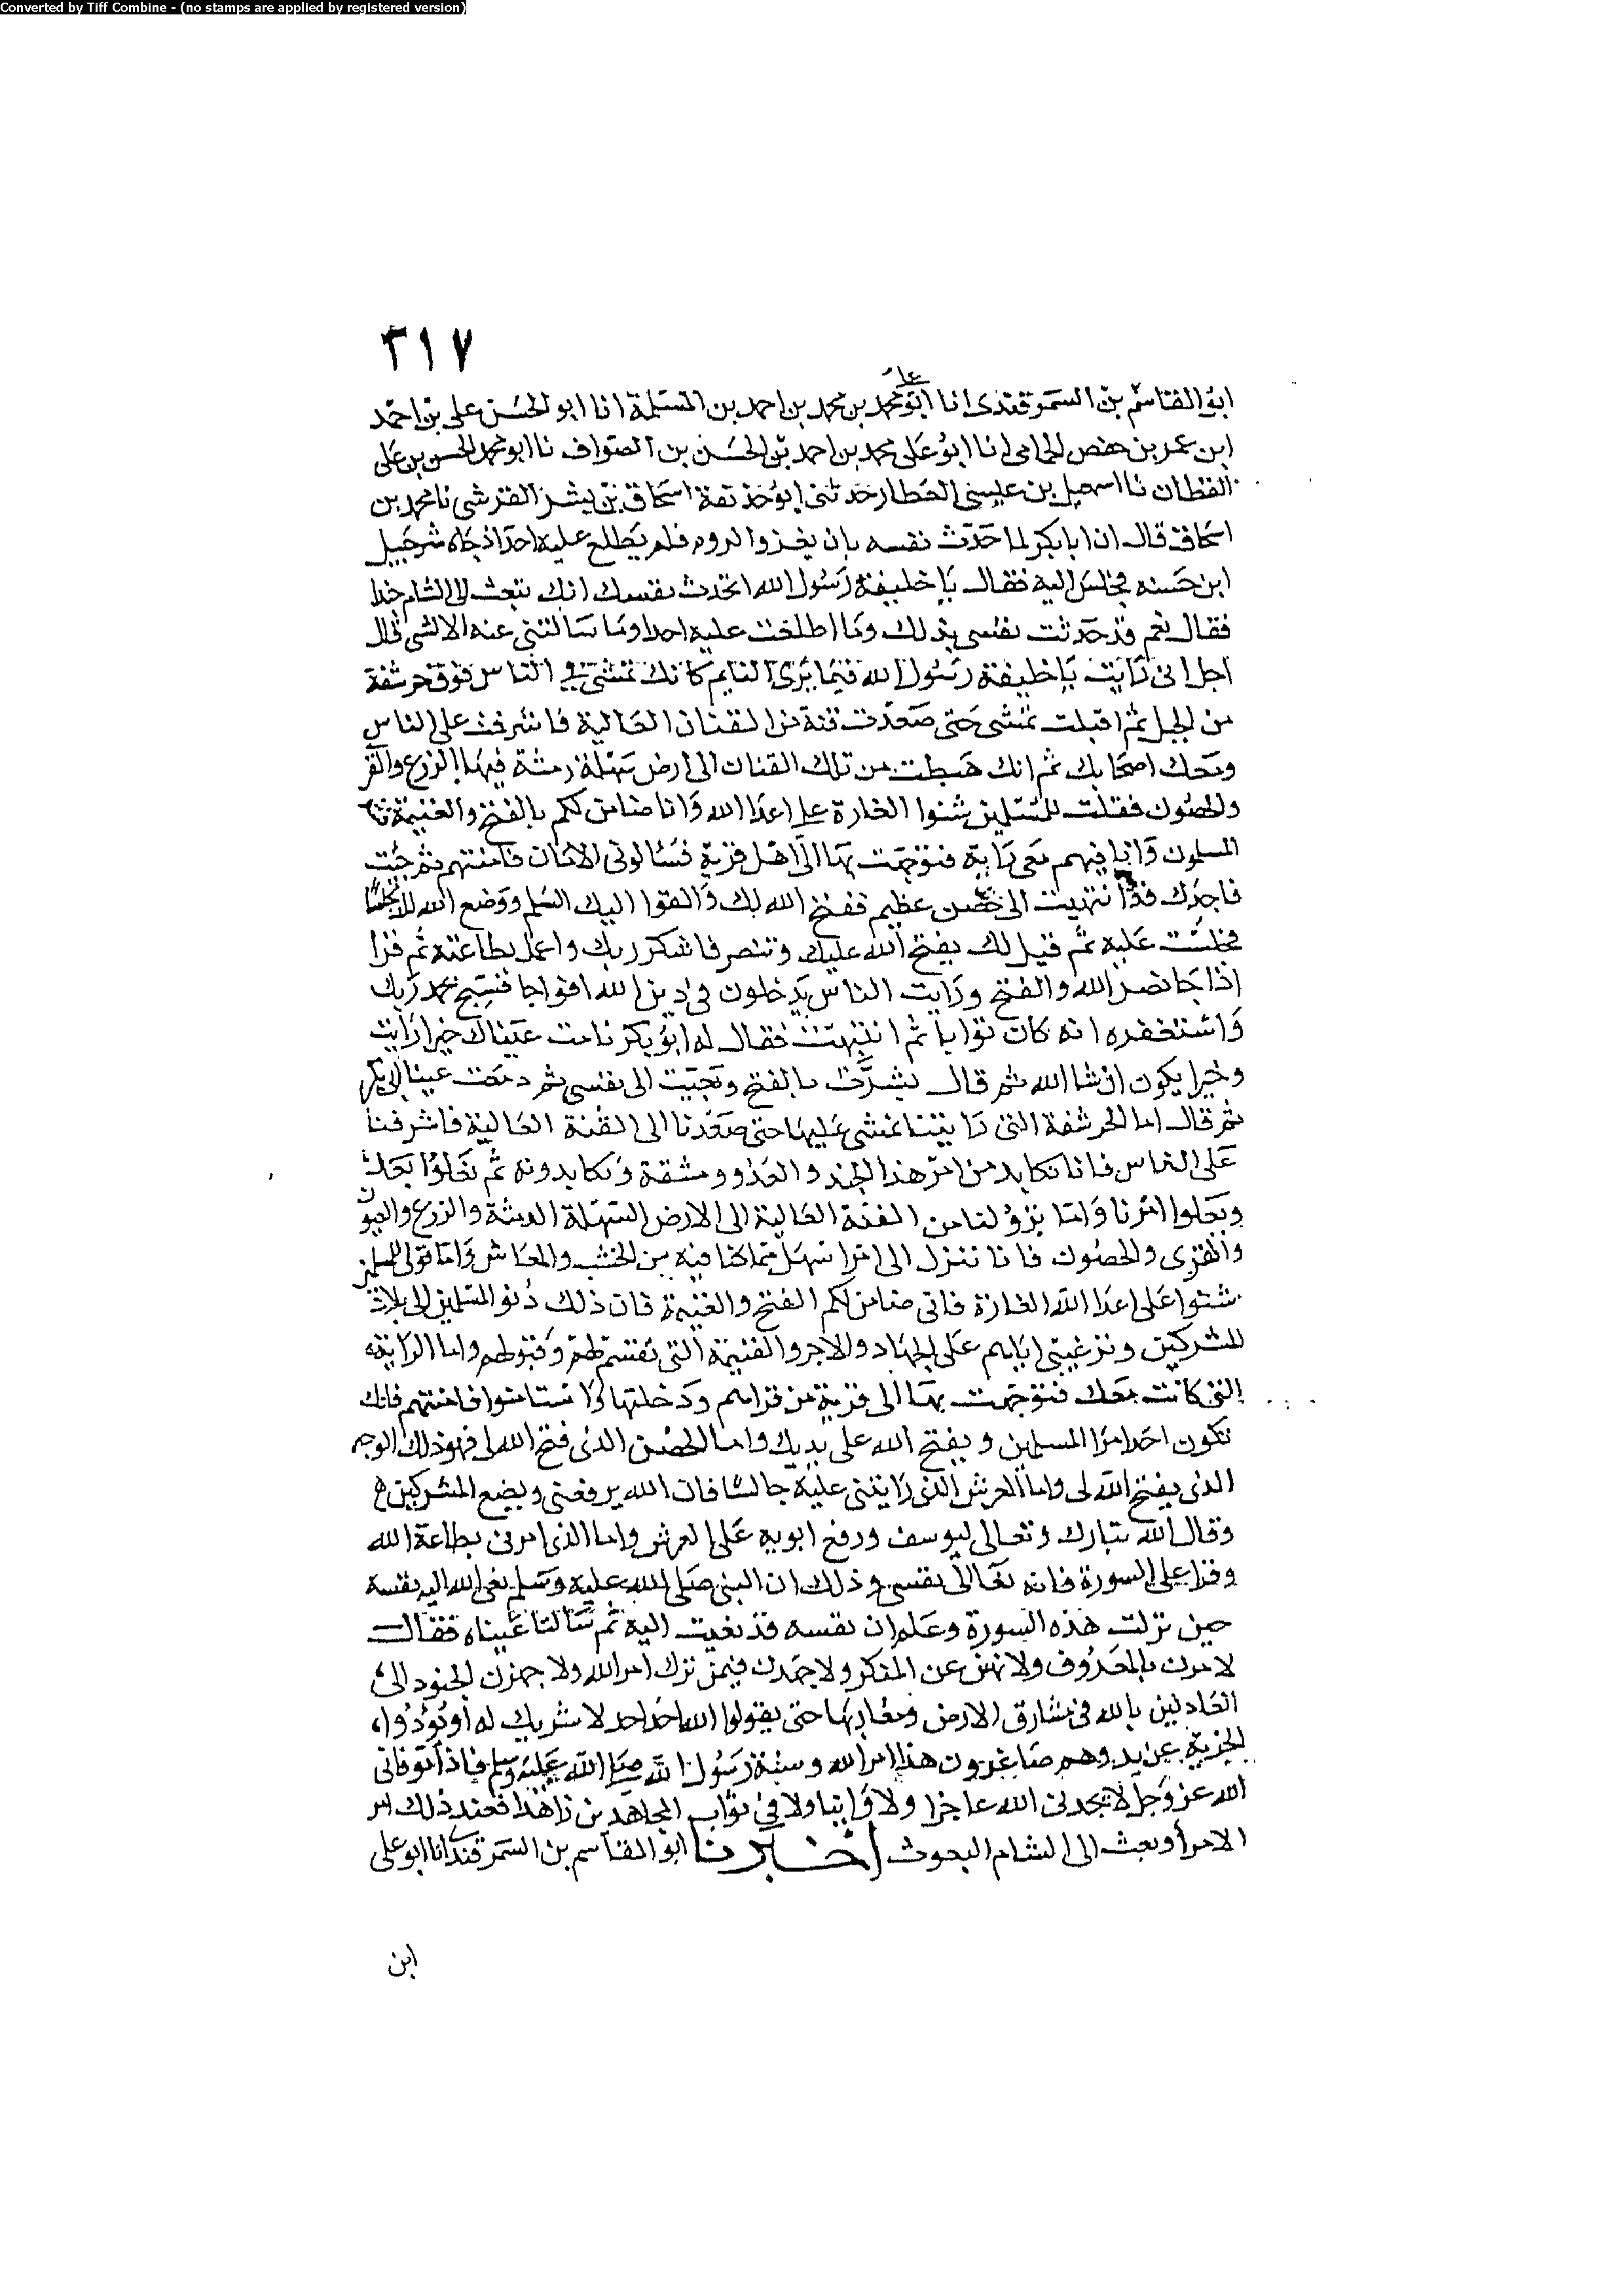 Converted by Tiff Combine - (no stamps are applied by registered version)
٣١٧
ابو القاسم بن السمرقندى انا ابو محمد بن محمد بن احمد بن المسلمة انا ابو الحسن على بن احمد
ابن عمر بن حفص الحمامى انا ابو على محمد بن احمد بن الحسن بن الصواف نا ابو محمد الحسن بن على
القطان نا اسمعيل بن عيسى العطار حدثنى ابو حذيفة اسحاق بن بشر القرشى نا محمد بن
اسحاق قال ان ابا بكر لما حدث نفسه بان يغزوا الروم فلم يطلع عليه احدا اذ جاه شرحبيل
ابن حسنه فجلس اليه فقال يا خليفة رسول الله اتحدث نفسك انك تبعث الى الشام جندا
فقال نعم قد حدثت نفسى بذلك وما اطلعت عليه احدا وما سالتنى عنه الا لشى قال
اجل انى رايت يا خليفة رسول الله فيما يرى النايم كانك تمشى فى الناس فوق حرشفة
من الجبل ثم اقبلت تمشى حتى صعدت قنة من القنان العالية فاشرفت على الناس
ومعك اصحابك ثم انك هبطت من تلك القنان الى ارض سهلة دمثة فيها الزرع والقر
والحصون فقلت للمسلمين شنوا الغارة على اعدا الله وانا ضامن لكم بالفتح والغنيمة
المسلمون وانا فيهم معى راية فتوجهت بها الى اهل قرية فسالونى الامان فامنتهم ثم جيت
فاجدك قد انتهيت الى حصن عظيم ففتح الله لك والقوا اليك السلم ووضع الله لك مجلسا
فجلست عليه ثم قيل لك يفتح الله عليك وتنصر فاشكر ربك واعمل بطاعته ثم قرا
اذا جا نصر الله والفتح ورايت الناس يدخلون فى دين الله افواجا فسبح بحمد ربك
واستغفره انه كان توابا ثم انتبهت فقال له ابو بكر نامت عيناك خيرا رايت
وخيرا يكون ان شا الله ثم قال بشرت بالفتح ونعيت الى نفسى ثم دمعت عينا ابى بكر
ثم قال اما الحرشفة التى رايتنا نمشى عليها حتى صعدنا الى القنة العالية فاشرفنا
على الناس فانا نكابد من امر هذا الجند والعدو ومشقة ونكابدونه ثم نعلوا بعد
ويعلوا امرنا واما نزولنا من القنة العالية الى الارض السهلة الدمثة والزرع والعيون
والقرى والحصون فانا ننزل الى امر اسهل مما كنا فيه من الخشب والمعاش واما قولى للمسلمين
شنوا على اعدا الله الغارة فانى ضامن لكم الفتح والغنيمة فان ذلك دنو المسلمين الى بلاد
المشركين وترغيبى اياهم على الجهاد والاجر والغنيمة التى تقسم لهم وقبولهم واما الراية
التى كانت معك فتوجهت بها الى قرية من قراهم ودخلتها واستامنوا فامنتهم فانك
تكون احد امرا المسلمين ويفتح الله على يديك واما الحصن الذى فتح الله لى فهو ذلك الوجه
الذى يفتح الله لى واما العرش الذى رايتنى عليه جالسا فان الله يرفعنى ويضع المشركين
وقال الله تبارك وتعالى ليوسف ورفع ابويه على العرش واما الذى امرنى بطاعة الله
وقرا على السورة فانه نعا الى نفسى وذلك ان النبى صلى الله عليه وسلم نعى الله اليه نفسه
حين نزلت هذه السورة وعلم ان نفسه قد نعيت اليه ثم سالتا عيناه فقال
لامرن بالمعروف ولانهن عن المنكر ولاجهدن فيمن ترك امر الله ولاجهزن الجنود الى
العادلين بالله فى مشارق الارض ومغاربها حتى يقولوا الله احد احد لا شريك له او يودوا
الجزية عن يد وهم صاغرون هذا امر الله وسنة رسول الله صلى الله عليه وسلم فاذا توفانى
الله عز وجل لا يجدنى الله عاجزا ولا وانيا ولا فى ثواب المجاهدين زاهدا فعند ذلك امر
الامرا وبعث الى الشام البعوث اخبرنا ابو القاسم بن السمرقندى انا ابو على
ابن